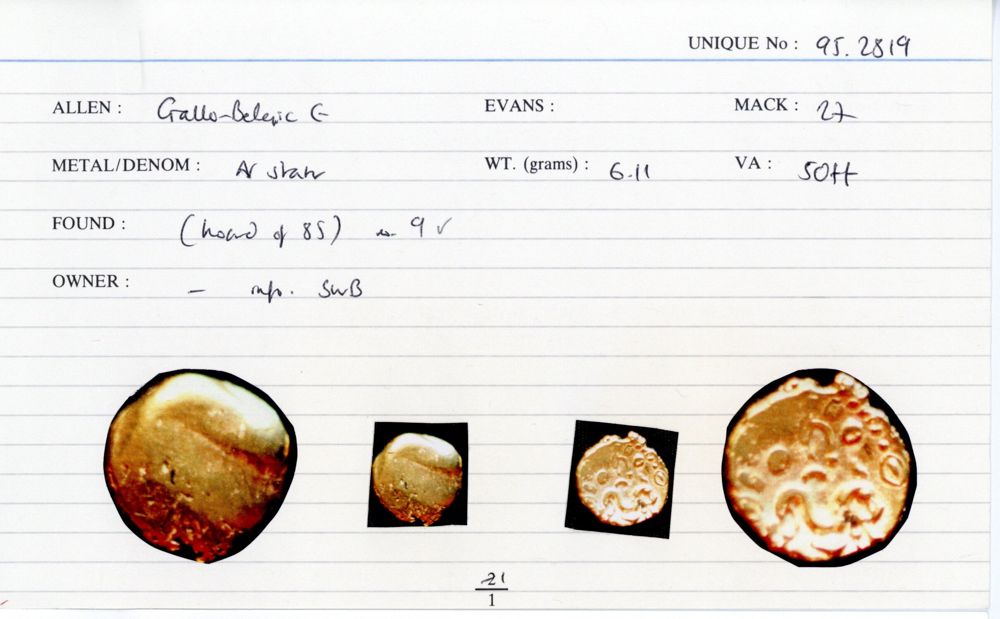 UNIQUE No : 95.2819
ALLEN : Gallo-Belgic E EVANS : MACK : 27
METAL/DENOM : AV stater WT. (grams) : 6.11 VA : 50ff
FOUND : (hoard of 85) no. 9 ✓
OWNER : — info. SWB
21
1